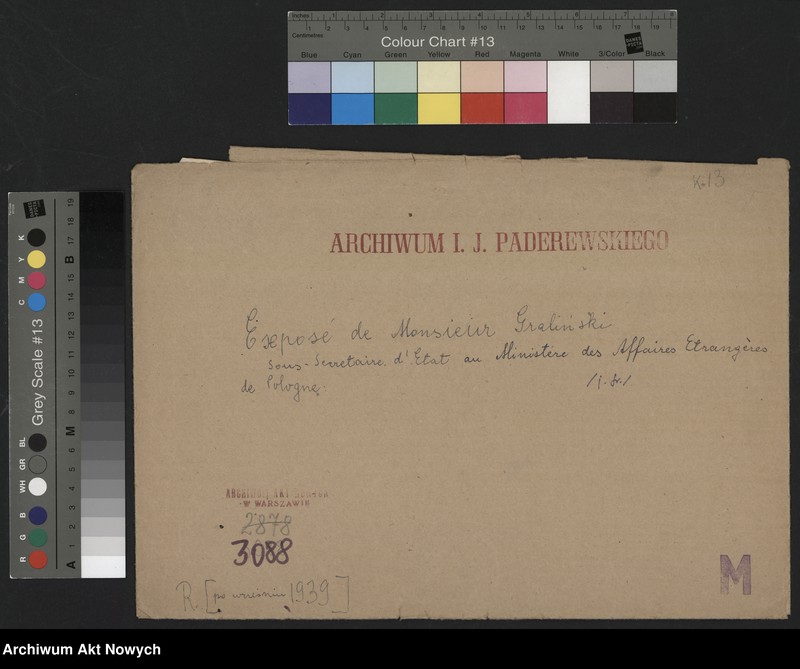 Inches 1 2 3 4 5 6 7 8
Centimetres 1 2 3 4 5 6 7 8 9 10 11 12 13 14 15 16 17 18 19
Colour Chart #13
Blue Cyan Green Yellow Red Magenta White 3/Color Black
K.13
ARCHIWUM I. J. PADEREWSKIEGO
Exposé de Monsieur Graliński
Sous-Secretaire d'État au Ministère des Affaires Etrangères
de Pologne.
ARCHIWUM AKT NOWYCH
W WARSZAWIE
2878
3088
R. [po wrześniu 1939]
M
Grey Scale #13
C M Y K
R G B WH GR BL
A 1 2 3 4 5 6 M 8 9 10 11 12 13 14 15 B 17 18 19
Archiwum Akt Nowych